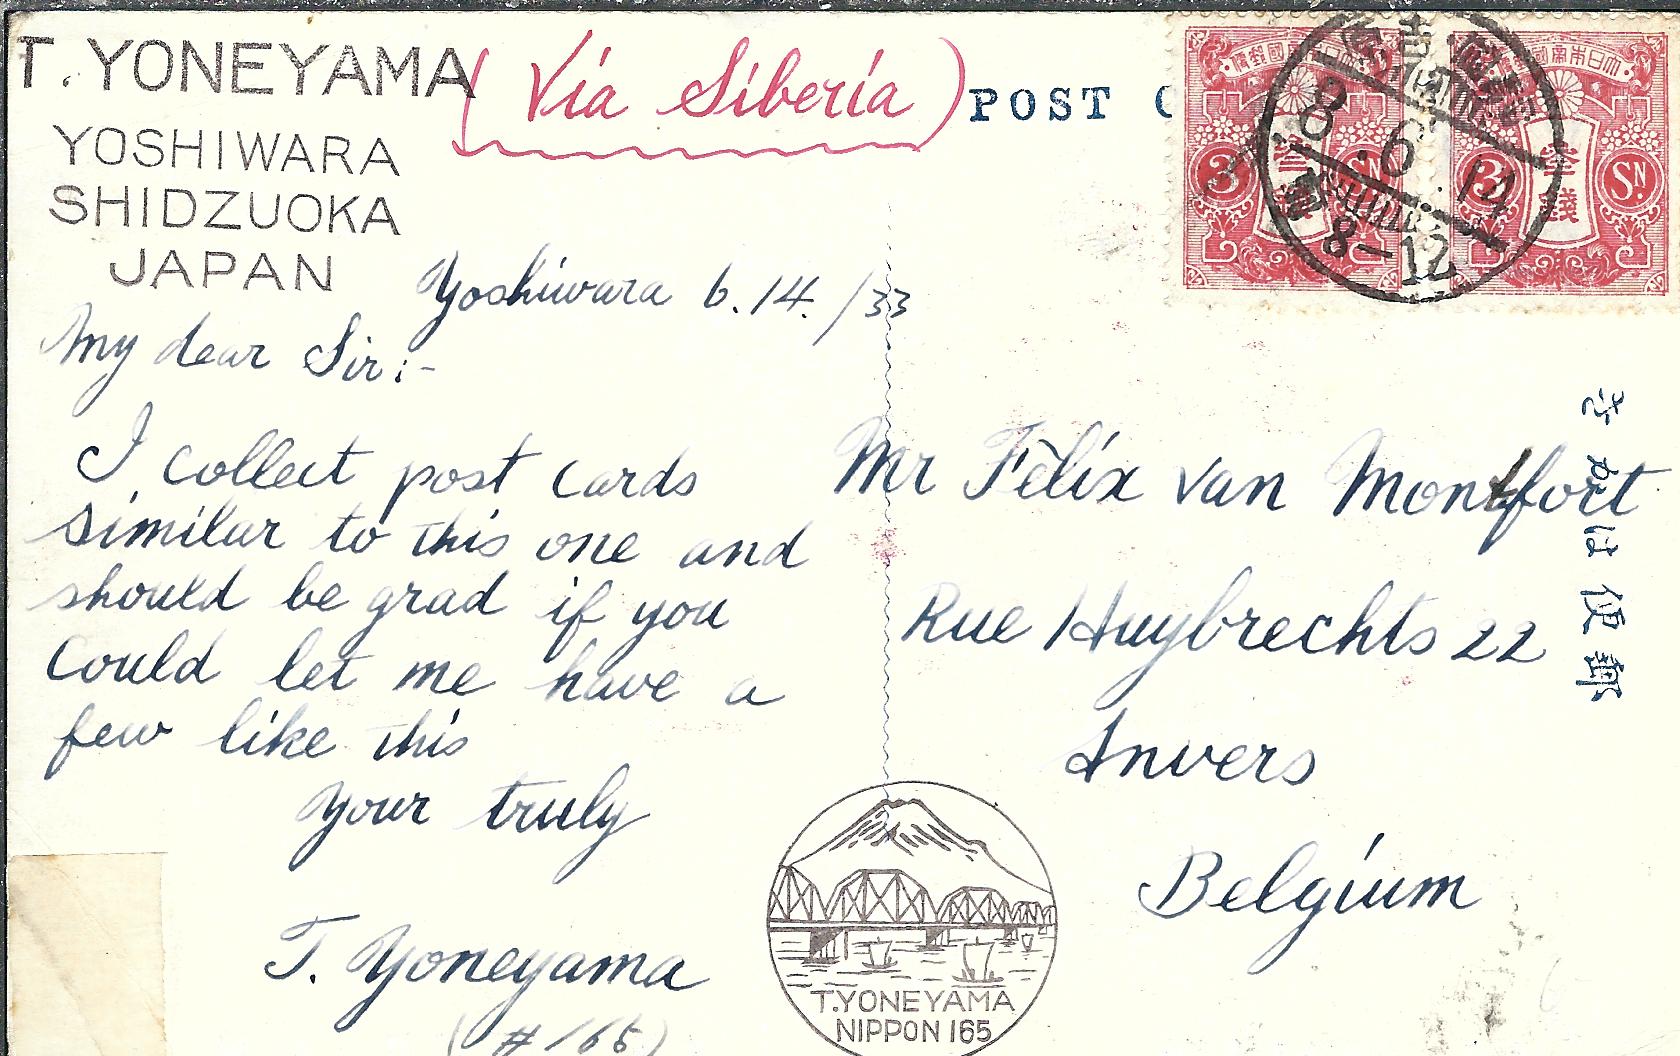 T. YONEYAMA
YOSHIWARA
SHIDZUOKA
JAPAN
(Via Siberia)
POST C
大日本帝國郵便
3
参銭
SN
大日本帝國郵便
3
参銭
SN
8.6.14
8-12
Yoshiwara 6.14./33
My dear Sir:-
I collect post cards
similar to this one and
should be grad if you
could let me have a
few like this
Your truly
T. Yoneyama
(#165)
Mr Fèlix van Montfort
Rue Huybrechts 22
Anvers
Belgium
きかは便郵
T.YONEYAMA
NIPPON 165